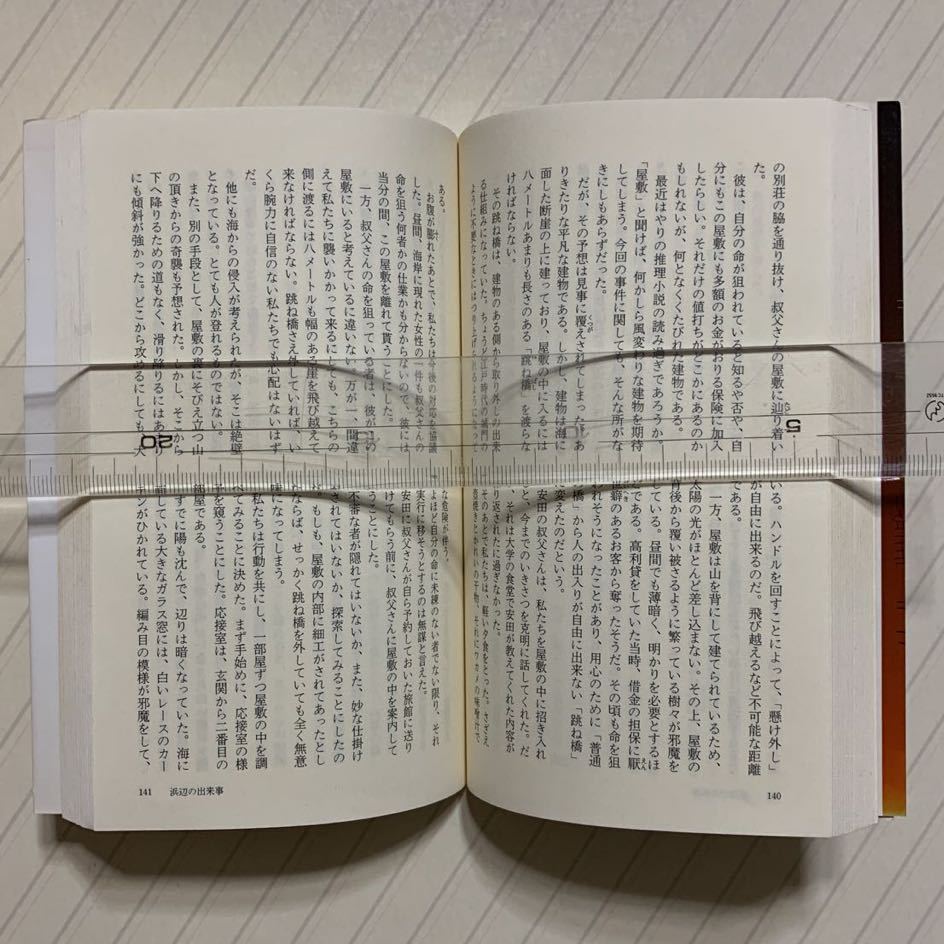 の別荘の脇を通り抜け、叔父さんの屋敷に辿り着い
た。
彼は、自分の命が狙われていると知るや否や、自
分にもこの屋敷にも多額のお金がおりる保険に加入
したらしい。それだけの値打ちがどこかにあるのか
もしれないが、何となくくたびれた建物である。
最近はやりの推理小説の読み過ぎであろうか。
「屋敷」と聞けば、何かしら風変わりな建物を期待
してしまう。今回の事件に関しても、そんな所がな
きにしもあらずだった。
だが、その予想は見事に覆えされてしまった。あ
りきたりな平凡な建物である。しかし、建物は海に
面した断崖の上に建っており、屋敷の中に入るには
八メートルあまりも長さのある「跳ね橋」を渡らな
ければならない。
その跳ね橋は、建物のある側から取り外しの出来
る仕組みになっていた。ちょうど江戸時代の城門の
ように不要なときにはつり上げられるようになって
いる。ハンドルを回すことによって、「懸け外し」
が自由に出来るのだ。飛び越えるなど不可能な距離
である。
一方、屋敷は山を背にして建てられているため、
太陽の光がほとんど差し込まない。その上、屋敷の
背後から覆い被さるように繁っている樹々が邪魔を
している。昼間でも薄暗く、明かりを必要とするほ
どである。高利貸をしていた当時、借金の担保に厭
世癖のあるお客から奪ったそうだ。その頃も命を狙
われそうになったことがあり、用心のために「普通
の橋」から人の出入りが自由に出来ない「跳ね橋」
に変えたのだという。
安田の叔父さんは、私たちを屋敷の中に招き入れ
ると、今までのいきさつを克明に話してくれた。だ
が、それは大学の食堂で安田が教えてくれた内容が
繰り返されたに過ぎなかった。
そのあとで私たちは、軽い夕食をとった。さざえ
の干物、それにワカメの味噌汁で
140
ある。
お腹が膨れたあとで、私たちは今後の対応を協議
した。昼間、海岸に現れた女性の一件も叔父さんの
命を狙う何者かの仕業かも分からないので、彼には
当分の間、この屋敷を離れて貰うことにした。
一方、叔父さんの命を狙っている者は、彼がこの
屋敷にいると考えているに違いない。万が一、間違
えて私たちに襲いかかって来るにしても、こちらの
側に渡るには八メートルも幅のある崖を飛び越えて
来なければならない。跳ね橋さえ外していれば、い
くら腕力に自信のない私たちでも心配はないはず
だ。
他にも海からの侵入が考えられるが、そこは絶壁
となっている。とても人が登れるものではない。
また、別の手段として、屋敷の裏にそびえ立つ山
の頂きからの奇襲も予想された。しかし、そこから
下へ降りるための道もなく、滑り降りるにはあまり
にも傾斜が強かった。どこから攻めるにしても、大
な危険が伴う。
よほど自分の命に未練のない者でない限り、それ
実行に移そうとするのは無謀と言えた。
安田に叔父さんが自ら予約しておいた旅館に送り
けてもらう前に、叔父さんに屋敷の中を案内して
うことにした。
不審な者が隠れてはいないか、また、妙な仕掛け
されてはいないか、探索してみることにしたの
だ。もしも、屋敷の内部に細工がされてあったとし
たならば、せっかく跳ね橋を外していても全く無意
味になってしまう。
私たちは行動を共にし、一部屋ずつ屋敷の中を調
べてみることに決めた。まず手始めに、応接室の様
子を窺うことにした。応接室は、玄関から二番目の
部屋である。
すでに陽も沈んで、辺りは暗くなっていた。海に
面している大きなガラス窓には、白いレースのカー
テンがひかれている。編み目の模様が邪魔をして、
141 浜辺の出来事
5
20